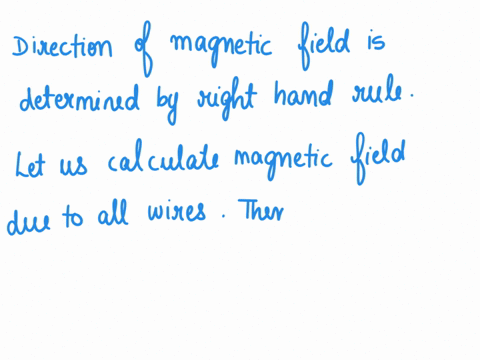 Direction of magnetic field is
determined by right hand rule.
Let us calculate magnetic field
due to all wires. Then